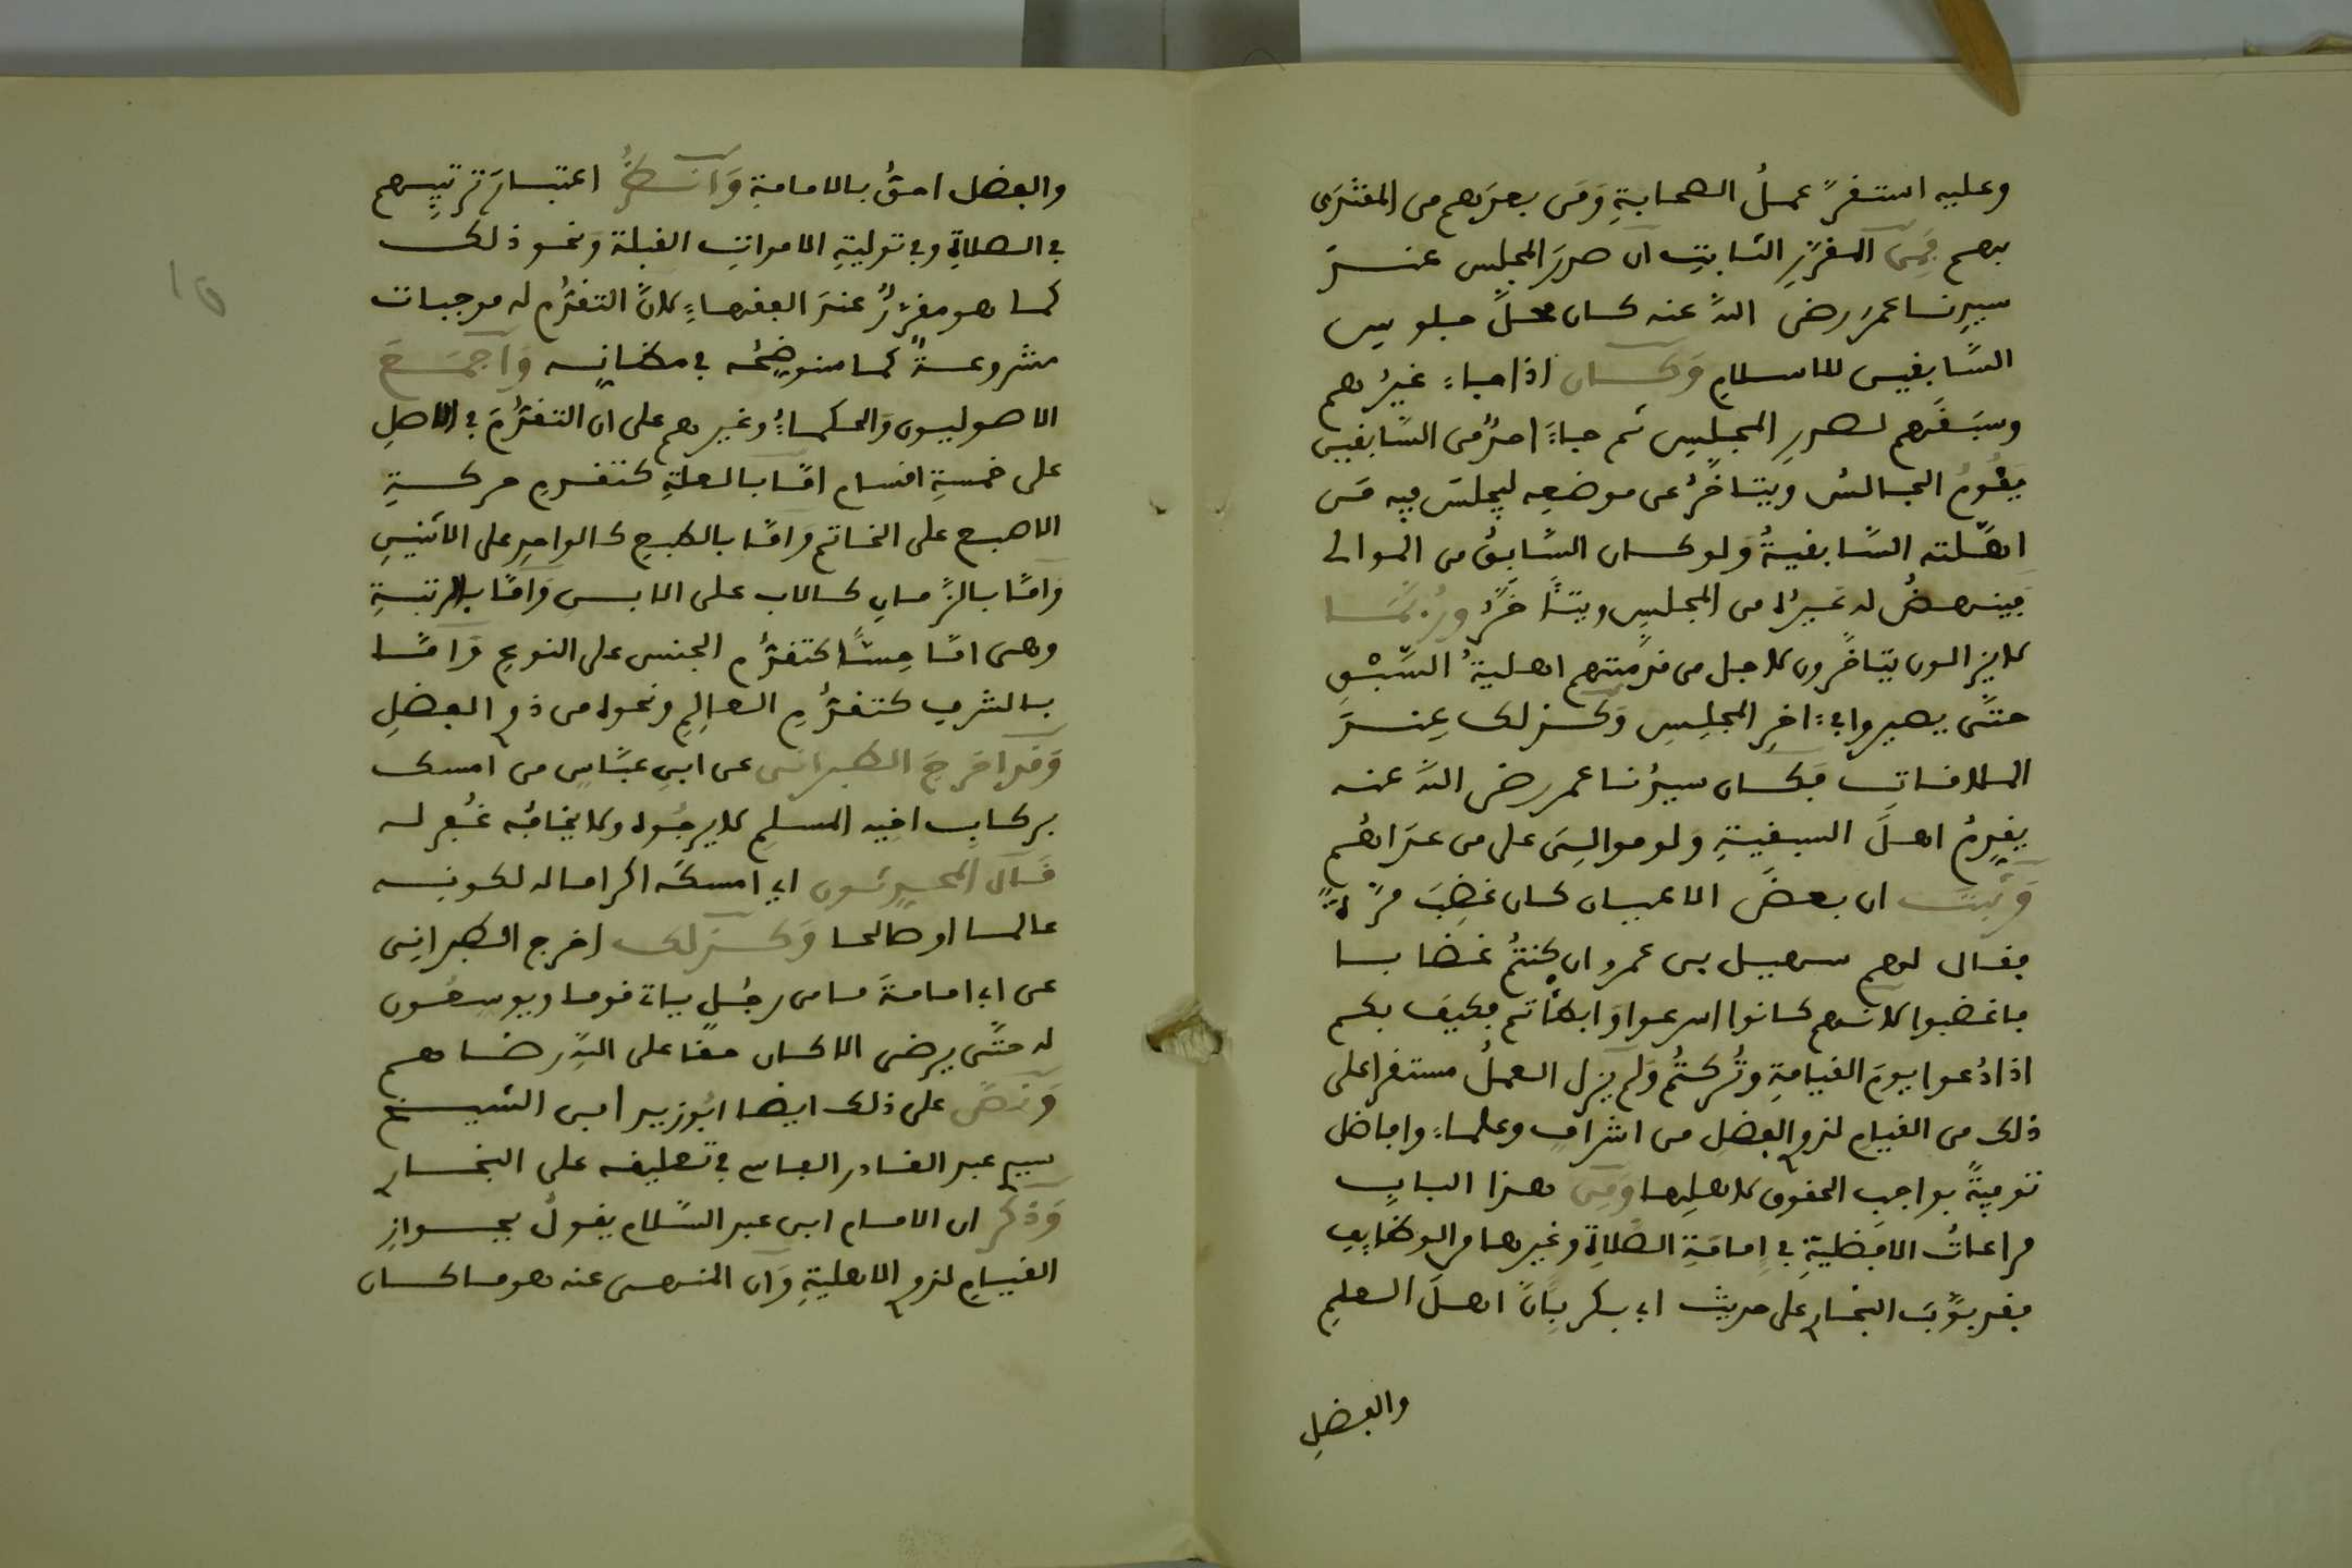 وعليه استقرّ عملُ الصحابةِ وَمَن بعدَهم من المقتدَى
بهم فمِنَ المقرّرِ الثابتِ ان صدرَ المجلِس عندَ
سيدِنا عمرَ رضي اللهُ عنه كان محلَّ جلوسِ
السَّابقين للاسلامِ وَكان اذا جاءَ غيرُهم
وسبَقَهم لصدرِ المجلِسِ ثم جاءَ احدٌ من السَّابقين
يقُومُ الجالسُ ويتاخَّرُ عن موضعِه ليجلسَ فيه مَن
اهّلته السَّابقيةُ وَلو كان السَّابقُ من الموالى
فينهضُ له غيرُه من المجلِسِ ويتأخَّرُ ورُبَّمَا
لا يزالون يتاخَّرون لاجل من قدمتهم اهليةُ السَّبْقِ
حتَّى يصيروا في ءاخرِ المجلِسِ وَكذلك عِندَ
الملاقاتِ فكان سيدُنا عمر رضي اللهُ عنه
يقدِمُ اهلَ السبقيةِ وَلو موالِىَ على من عدَاهُم
وَثبتَ ان بعضَ الاعيان كان غضِبَ مرَّةً
فقال لهم سهيل بن عمرو ان كنتُم غضابا
فاغضبوا لانهم كانوا اسرعوا وَابطأتم فكيفَ بكم
اذا دُعوا يومَ القيامةِ وتُركتُم وَلم يزلِ العملُ مستقرا على
ذلك من القيامِ لذوي الفضلِ من اشرافٍ وعلماءَ وافاضل
توفيةً بواجبِ الحقوقِ لاهلِها وَمِن هذا البابِ
مراعاتُ الافضليَّةِ في اِمامَةِ الصَّلاةِ وغيرها من الوظايِفِ
فقد بوَّبَ البخاري على حديث ابي بكر بِانَّ اهلَ العلمِ
والفضلِ
والفضل احقُّ بالامامةِ وَانظُرْ اعتبارَ ترتيبِهم
في الصلاةِ وفي توليةِ الامواتِ القبلة وَنحو ذلك
كما هو مقرَّرٌ عندَ الفقهاءِ لانَّ التقدُّم له موجبات
مشروعةٌ كما سنوضِحُه في مظانِه وَاجمَعَ
الاصوليون وَالحكماءُ وغيرهم على ان التقدُّمَ في الاصلِ
على خمسةِ اقسام امَّا بالعلةِ كتقدم حركةِ
الاصبع على الخاتم وَامَّا بالطبعِ كالواحِدِ على الاثنينِ
وَامَّا بالزَّمانِ كالاب على الابن وَامَّا بالرتبةِ
وهى امَّا حِسًّا كتقدُّم الجنس على النوعِ وَامَّا
بالشرفِ كتقدُّمِ العالِمِ ونحوِه من ذوي الفضلِ
وَقد اخرجَ الطبرانى عن ابنِ عبَّاسٍ من امسك
بركابِ اخيه المسلمِ لا يرجُوه ولا يخافُه غُفر له
قال المحدِثون اي امسكَه اكراما له لكونِه
عالما او صالحا وَكذلك اخرج الطبرانِى
عن ابي امامةَ ما من رجُلٍ ياتي قوما ويوسعُون
له حتَّى يرضى الا كان حقا على اللهِ رضاهم
وَنصَّ على ذلك ايضا ابُو زيد ابن الشيخ
سيدي عبد القادر الفاسى في تعليقه على البخاري
وَذكر ان الامام ابن عبد السَّلام يقولُ بجوازِ
القيامِ لذوي الاهليةِ وَان المنهىَ عنه هو ما كان